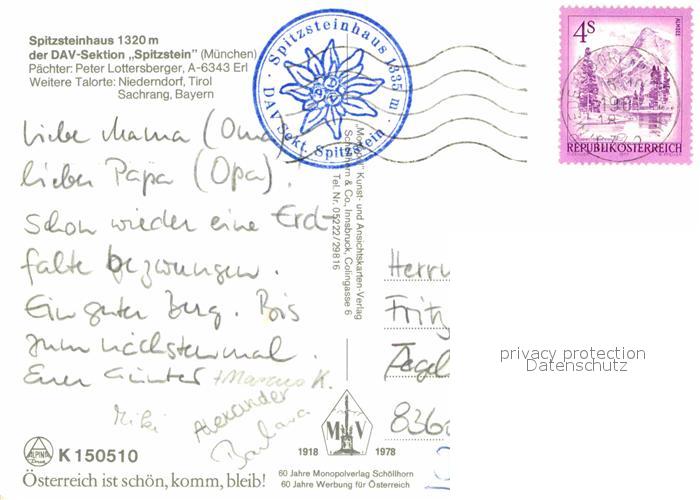 Spitzsteinhaus 1320 m
der DAV-Sektion „Spitzstein" (München)
Pächter: Peter Lottersberger, A-6343 Erl
Weitere Talorte: Niederndorf, Tirol
Sachrang, Bayern
· Spitzsteinhaus 1335 m ·
DAV Sekt. Spitzstein
4 S
ALMSEE
REPUBLIK ÖSTERREICH
Liebe Mama (Oma)
lieber Papa (Opa).
Schon wieder eine Erd-
falte bezwungen.
Ein guter Berg. Bis
zum nächstenmal.
Euer Günter + Marcus K.
Miki
Alexander
Barbara
Monopol" Kunst- und Ansichtskarten-Verlag
Schöllhorn & Co., Innsbruck, Colingasse 6
Tel. Nr. 05222/29816
Herrn
Fritz
836
privacy protection
Datenschutz
ALPINA
Druck
K 150510
Österreich ist schön, komm, bleib!
M V
1918 1978
60 Jahre Monopolverlag Schöllhorn
60 Jahre Werbung für Österreich